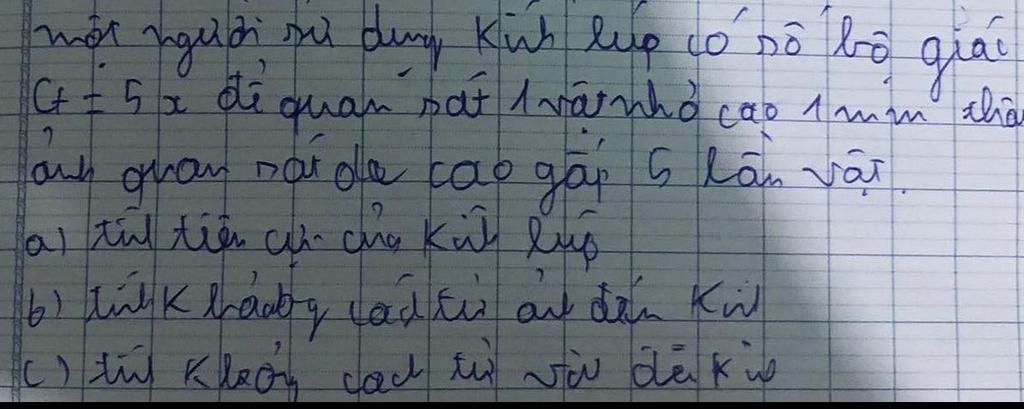 một người sử dụng kính lúp có số bộ giác
G = 5x để quan sát 1 vật nhỏ cao 1mm thấ
ảnh quan sát đc cao gấp 5 lần vật.
a) tính tiêu cự của kính lúp
b) tính khoảng cách từ ảnh đến kính
c) tính khoảng cách từ vật đến kính